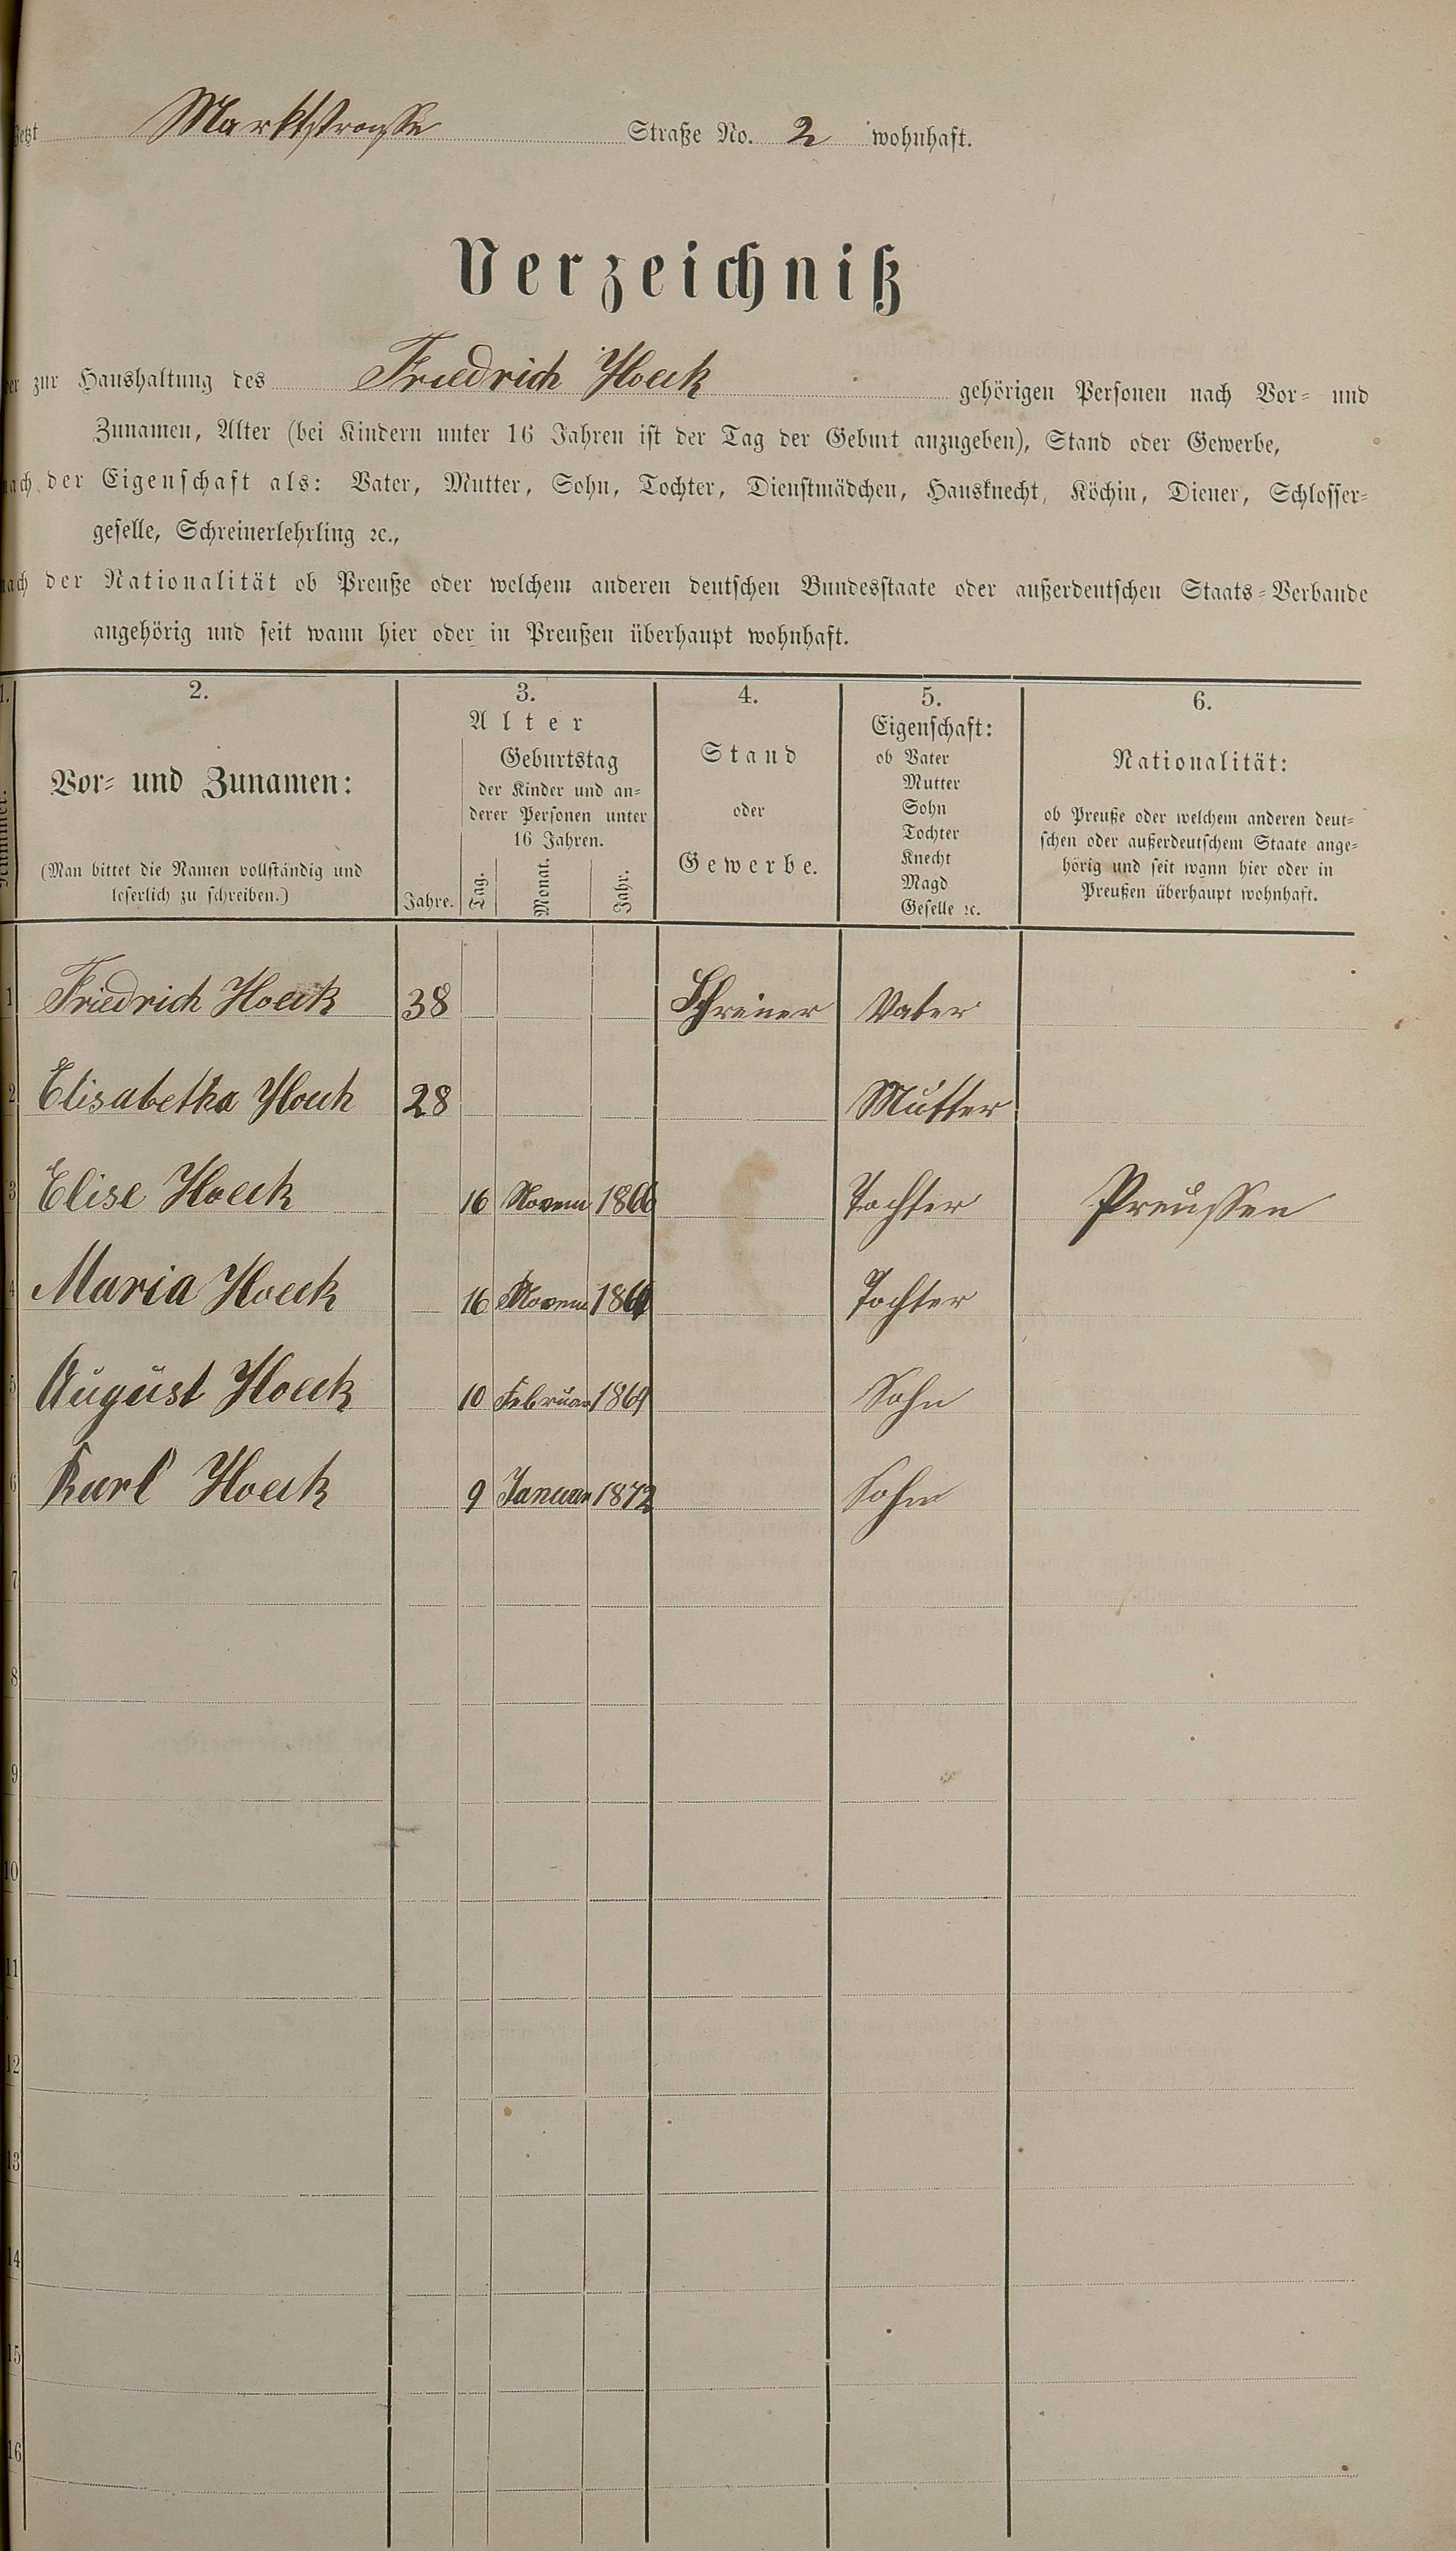 Jetzt Marktstrasse Straße No. 2 wohnhaft.
Verzeichniß
der zur Haushaltung des Friedrich Hoeck gehörigen Personen nach Vor- und
Zunamen, Alter (bei Kindern unter 16 Jahren ist der Tag der Geburt anzugeben), Stand oder Gewerbe,
nach der Eigenschaft als: Vater, Mutter, Sohn, Tochter, Dienstmädchen, Hausknecht, Köchin, Diener, Schlosser-
geselle, Schreinerlehrling ꝛc.,
nach der Nationalität ob Preuße oder welchem anderen deutschen Bundesstaate oder außerdeutschen Staats-Verbande
angehörig und seit wann hier oder in Preußen überhaupt wohnhaft.
1.
Nummer.
2.
Vor- und Zunamen:
(Man bittet die Namen vollständig und
leserlich zu schreiben.)
3.
Alter
Jahre.
Geburtstag
der Kinder und an-
derer Personen unter
16 Jahren.
Tag. Monat. Jahr.
4.
Stand
oder
Gewerbe.
5.
Eigenschaft:
ob Vater
Mutter
Sohn
Tochter
Knecht
Magd
Geselle ꝛc.
6.
Nationalität:
ob Preuße oder welchem anderen deut-
schen oder außerdeutschem Staate ange-
hörig und seit wann hier oder in
Preußen überhaupt wohnhaft.
1 Friedrich Hoeck 38 Schreiner Vater
2 Elisabetha Hoeck 28 Mutter
3 Elise Hoeck 16 Novem 1866 Tochter Preussen
4 Maria Hoeck 16 Novem Tochter
5 August Hoeck 10 Februar 1869 Sohn
6 Karl Hoeck 9 Januar 1872 Sohn
7
8
9
10
11
12
13
14
15
16